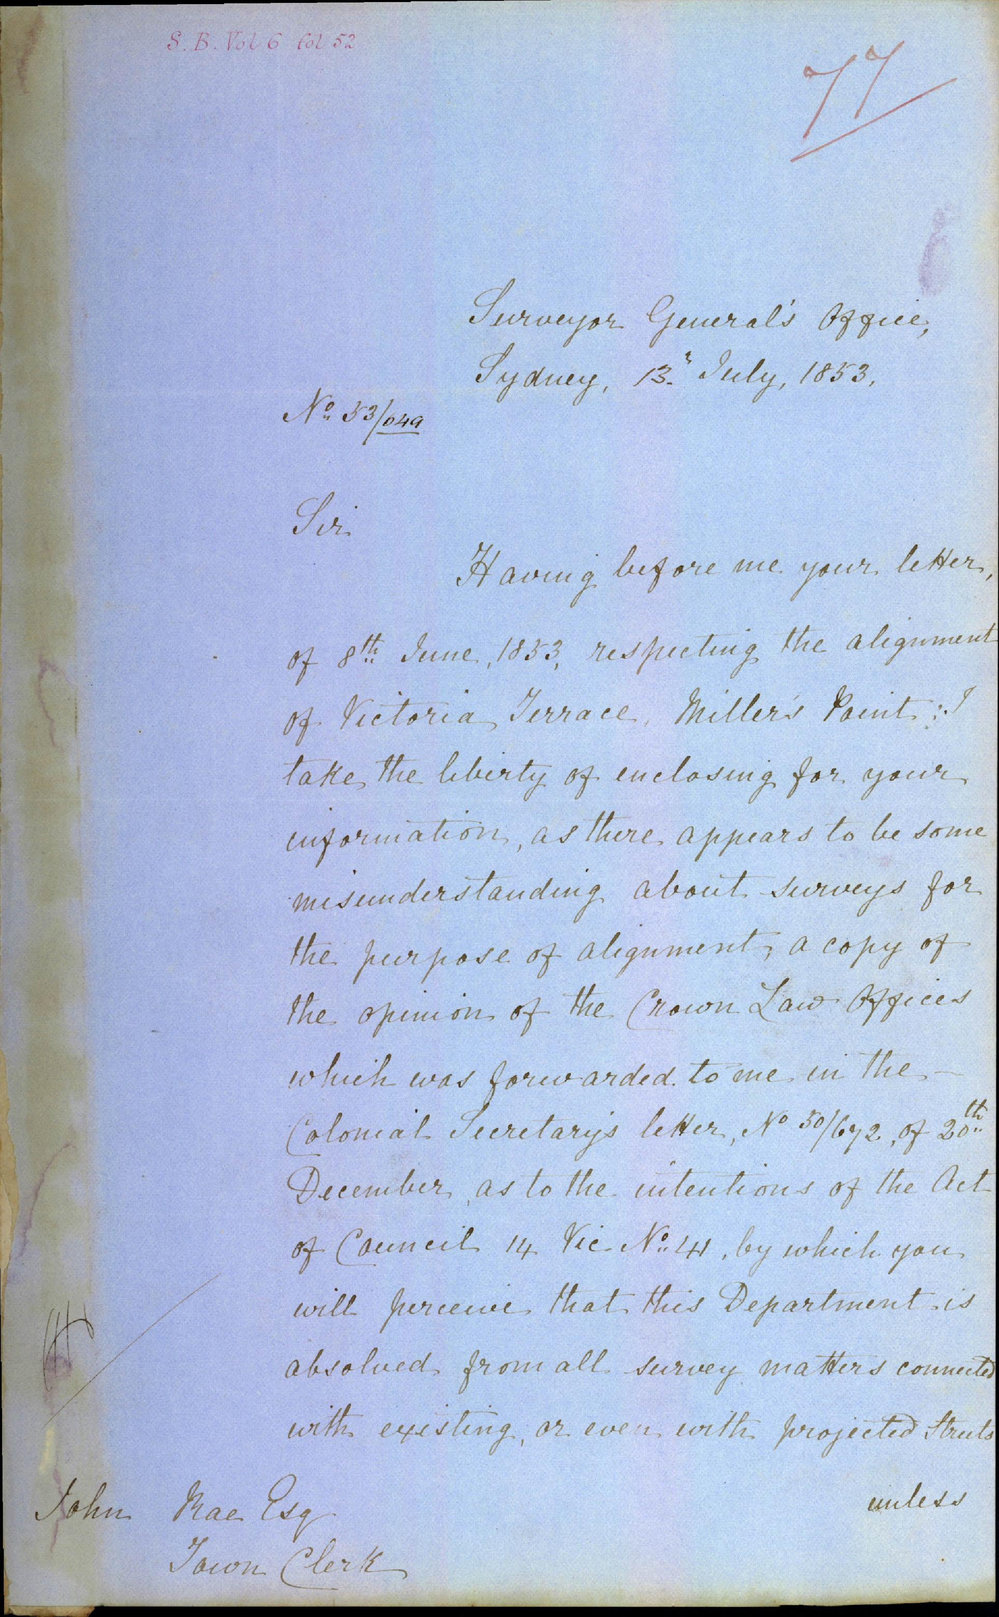 S. B. Vol 6 fol 52
77
Surveyor General's Office,
Sydney, 13th July, 1853.
No 53/049
Sir
Having before me your letter,
of 8th June, 1853, respecting the alignment
of Victoria Terrace, Miller's Point: I
take the liberty of enclosing for your
information, as there appears to be some
misunderstanding about surveys for
the purpose of alignment, a copy of
the opinion of the Crown Law Offices
which was forwarded to me in the
Colonial Secretary's letter, No 50/672, of 20th
December, as to the intentions of the Act
of Council 14 Vic No 41, by which you
will perceive that this Department is
absolved from all survey matters connected
with existing, or even with projected Streets
unless
John Rae Esq
Town Clerk